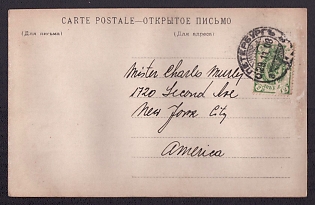 CARTE POSTALE—ОТКРЫТОЕ ПИСЬМО
(Для письма) (Для адреса)
Mister Charles Murley
1720 Second Ave
New York City
America